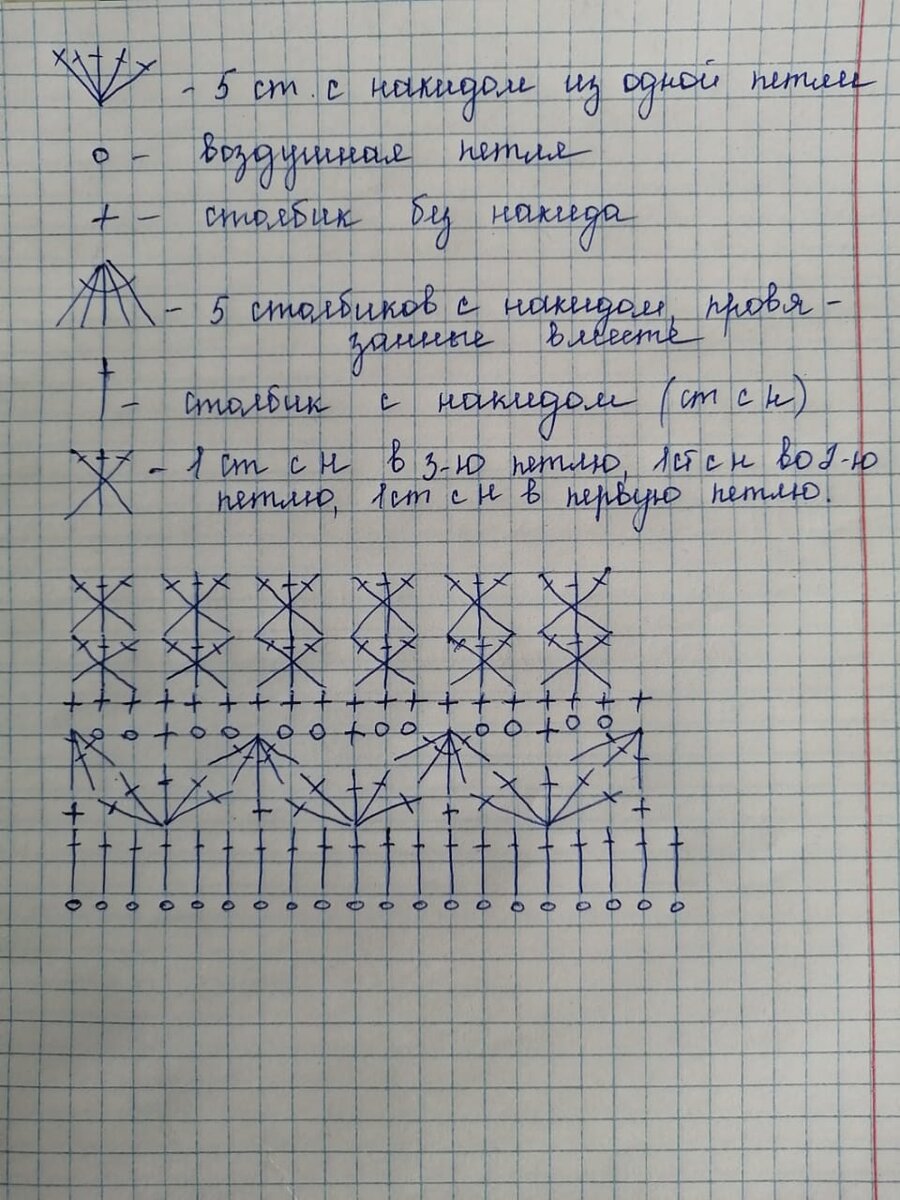 - 5 ст. с накидом из одной петли
о - воздушная петля
+ - столбик без накида
- 5 столбиков с накидом, провя-
занные вместе
- столбик с накидом (ст с н)
- 1 ст с н в 3-ю петлю, 1 ст с н во 2-ю
петлю, 1 ст с н в первую петлю.